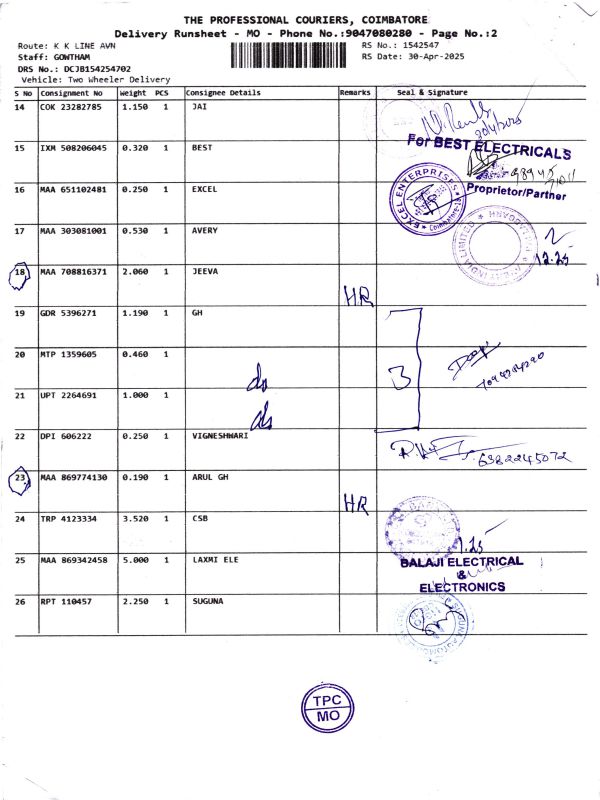 THE PROFESSIONAL COURIERS, COIMBATORE
Delivery Runsheet - MO - Phone No.:9047080280 - Page No.:2
Route: K K LINE AVN
RS No.: 1542547
Staff: GOWTHAM
RS Date: 30-Apr-2025
DRS No.: DCJB154254702
Vehicle: Two Wheeler Delivery
S No Consignment No Weight PCS Consignee Details Remarks Seal & Signature
14 COK 23282785 1.150 1 JAI
15 IXM 508206045 0.320 1 BEST
For BEST ELECTRICALS
Proprietor/Partner
16 MAA 651102481 0.250 1 EXCEL
EXCEL ENTERPRISES
17 MAA 303081001 0.530 1 AVERY
12.25
18 MAA 708816371 2.060 1 JEEVA
HR
19 GDR 5396271 1.190 1 GH
20 MTP 1359605 0.460 1
do
3
21 UPT 2264691 1.000 1
do
22 DPI 606222 0.250 1 VIGNESHWARI
6382245072
23 MAA 869774130 0.190 1 ARUL GH
HR
24 TRP 4123334 3.520 1 CSB
1.25
25 MAA 869342458 5.000 1 LAXMI ELE
BALAJI ELECTRICAL
&
ELECTRONICS
26 RPT 110457 2.250 1 SUGUNA
TPC
MO